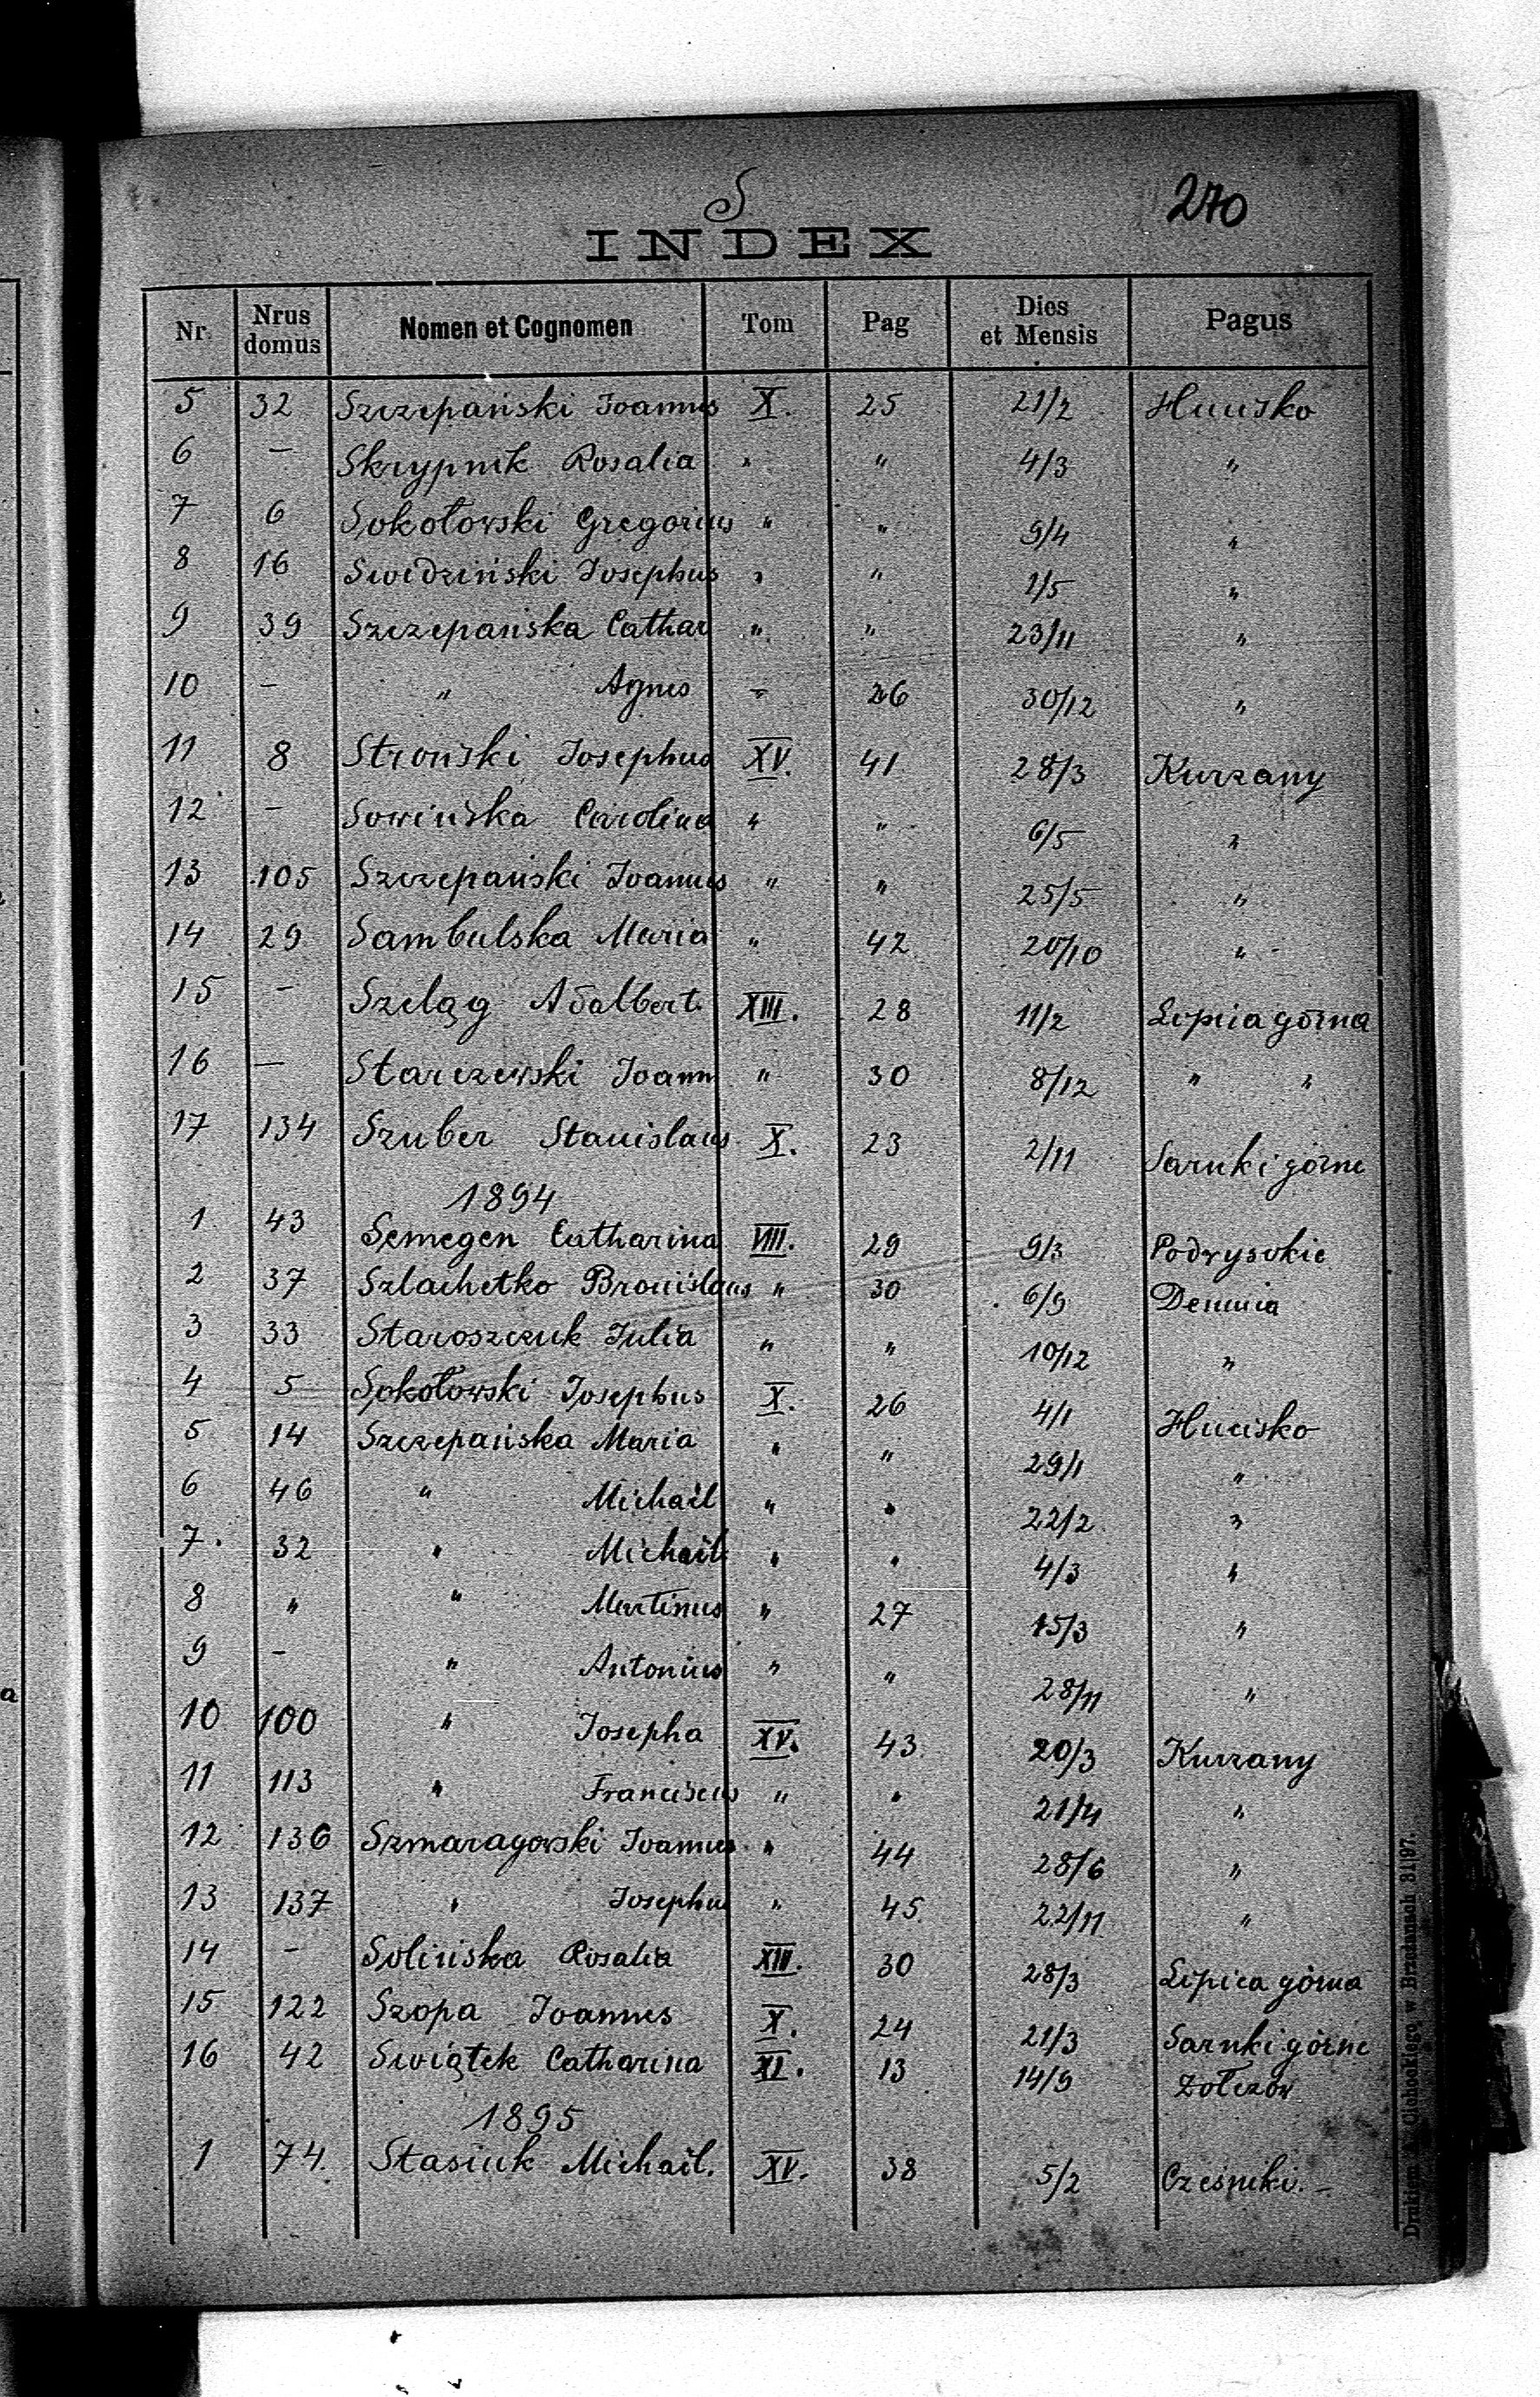 S
270
INDEX
Nr. Nrus domus Nomen et Cognomen Tom Pag Dies et Mensis Pagus
5 32 Szczepański Joannes X. 25 21/2 Hucisko
6 — Skrypnik Rosalia " " 4/3 "
7 6 Sokołowski Gregorius " " 9/4 "
8 16 Swidziński Josephus " " 1/5 "
9 39 Szczepańska Cathar " " 23/11 "
10 — " Agnes " 26 30/12 "
11 8 Stroński Josephus XV. 41 28/3 Kurzany
12 — Sowińska Carolina " " 6/5 "
13 105 Szczepański Joannes " " 25/5 "
14 29 Sambulska Maria " 42 20/10 "
15 — Szeląg Adalbert. XIII. 28 11/2 Lipica górna
16 — Starczewski Joann " 30 8/12 " "
17 134 Szuber Stanislaus X. 23 2/11 Sarnki górne
1894
1 43 Semegen Catharina VIII. 29 9/3 Podwysokie
2 37 Szlachetko Bronislaus " 30 6/9 Demnia
3 33 Staroszczuk Julia " " 10/12 "
4 5 Sokołowski Josephus X. 26 4/1 Hucisko
5 14 Szczepańska Maria " " 29/1 "
6 46 " Michaël " " 22/2 "
7. 32 " Michaël " " 4/3 "
8 " " Martinus " 27 15/3 "
9 — " Antonius " " 28/11 "
10 100 " Josepha XV. 43 20/3 Kurzany
11 113 " Franciscus " " 21/4 "
12 136 Szmaragowski Joannes " 44 28/6 "
13 137 " Josephus " 45. 22/11 "
14 — Solińska Rosalia XIII. 30 28/3 Lipica górna
15 122 Szopa Joannes X. 24 21/3 Sarnki górne
16 42 Swiątek Catharina XI. 13 14/9 Żołczów
1895
1 74. Stasiuk Michaël. XV. 38 5/2 Cześniki. —
Drukiem Cichockiego w Brzeżanach 31|97.